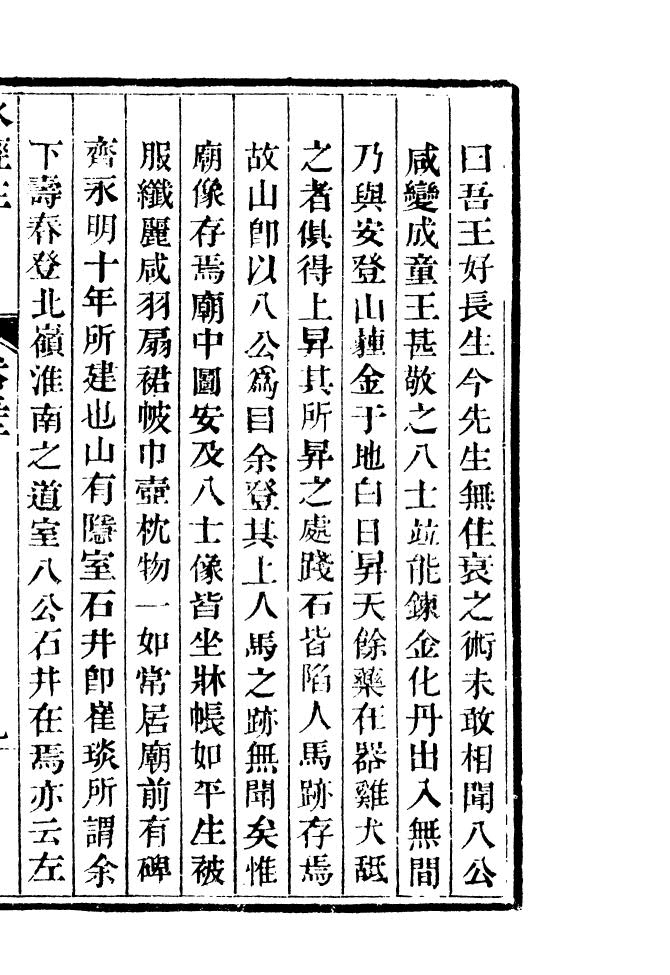 曰吾王好長生今先生無住衰之術未敢相聞八公
咸變成童王甚敬之八士竝能鍊金化丹出入無間
乃與安登山薶金于地白日昇天餘藥在器雞犬䑛
之者俱得上昇其所昇之處踐石皆陷人馬跡存焉
故山卽以八公爲目余登其上人馬之跡無聞矣惟
廟像存焉廟中圖安及八士像皆坐牀帳如平生被
服纖麗咸羽扇裙帔巾壺枕物一如常居廟前有碑
齊永明十年所建也山有隱室石井卽崔琰所謂余
下壽春登北嶺淮南之道室八公石井在焉亦云左
水經注